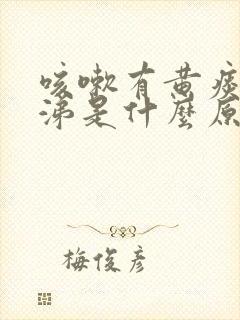 咳嗽有黄痰
涕是什麼原
梅俊彦